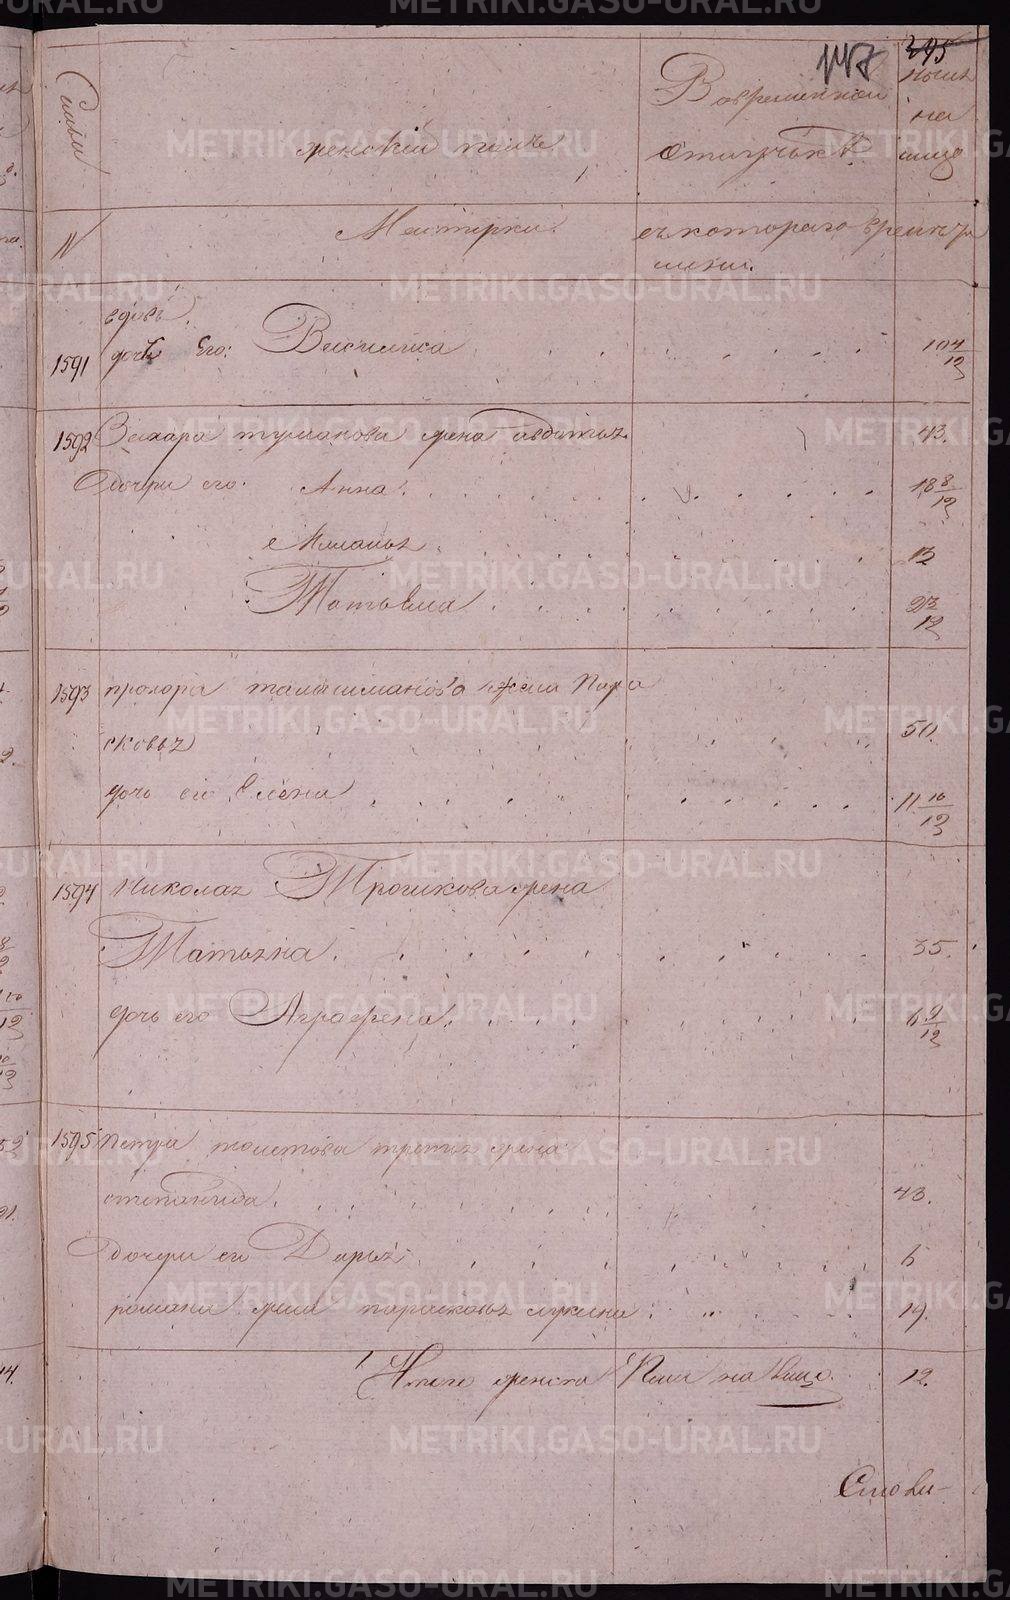 147 395
Семьи
женский полъ
Во временной отлучкѣ
ныне на лицо
N
Мастерки.
съ котораго времени.
вдовъ
1591 дочь Его: Василиса 10 4/12
1592 Захара туманова жена авдотья 43.
Дочери его: Анна 18 8/12
Маланья 13
Татьяна 2 3/12
1593 прохора талашманова жена Пара
сковья 50.
дочь ево Елена 11 10/12
1594 Николая Трошкова жена
Татьяна 35.
дочь его Аграфена 6 9/12
1595 Петра толстова третья жена
степанида 43.
Дочери ево Дарья 6
романа жена парасковья лукина 19.
Итого женска Пола на лицо. 12.